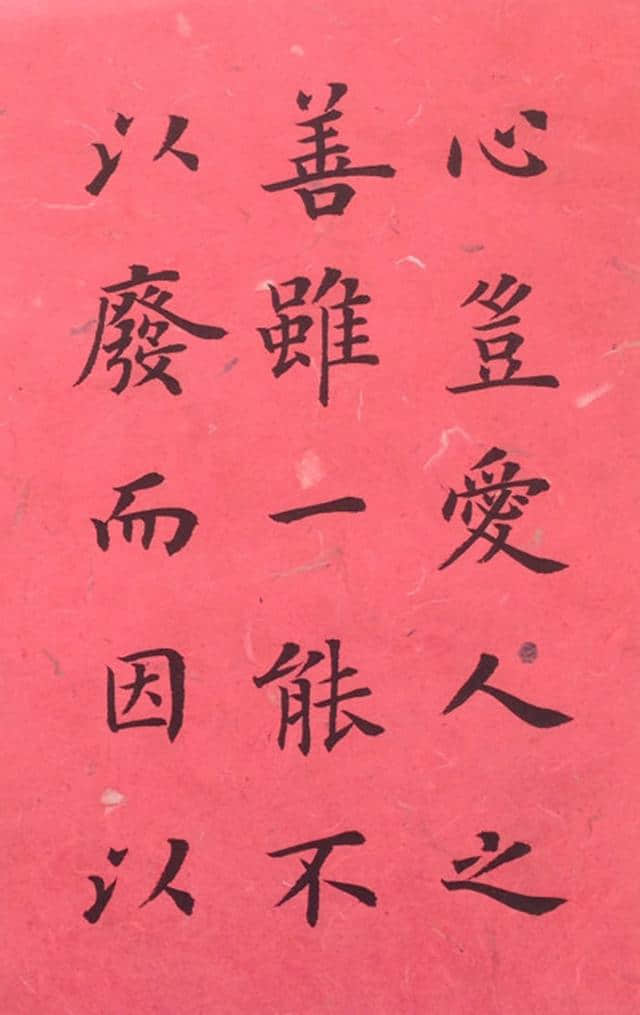 心豈愛人之
善雖一能不
以廢而因以